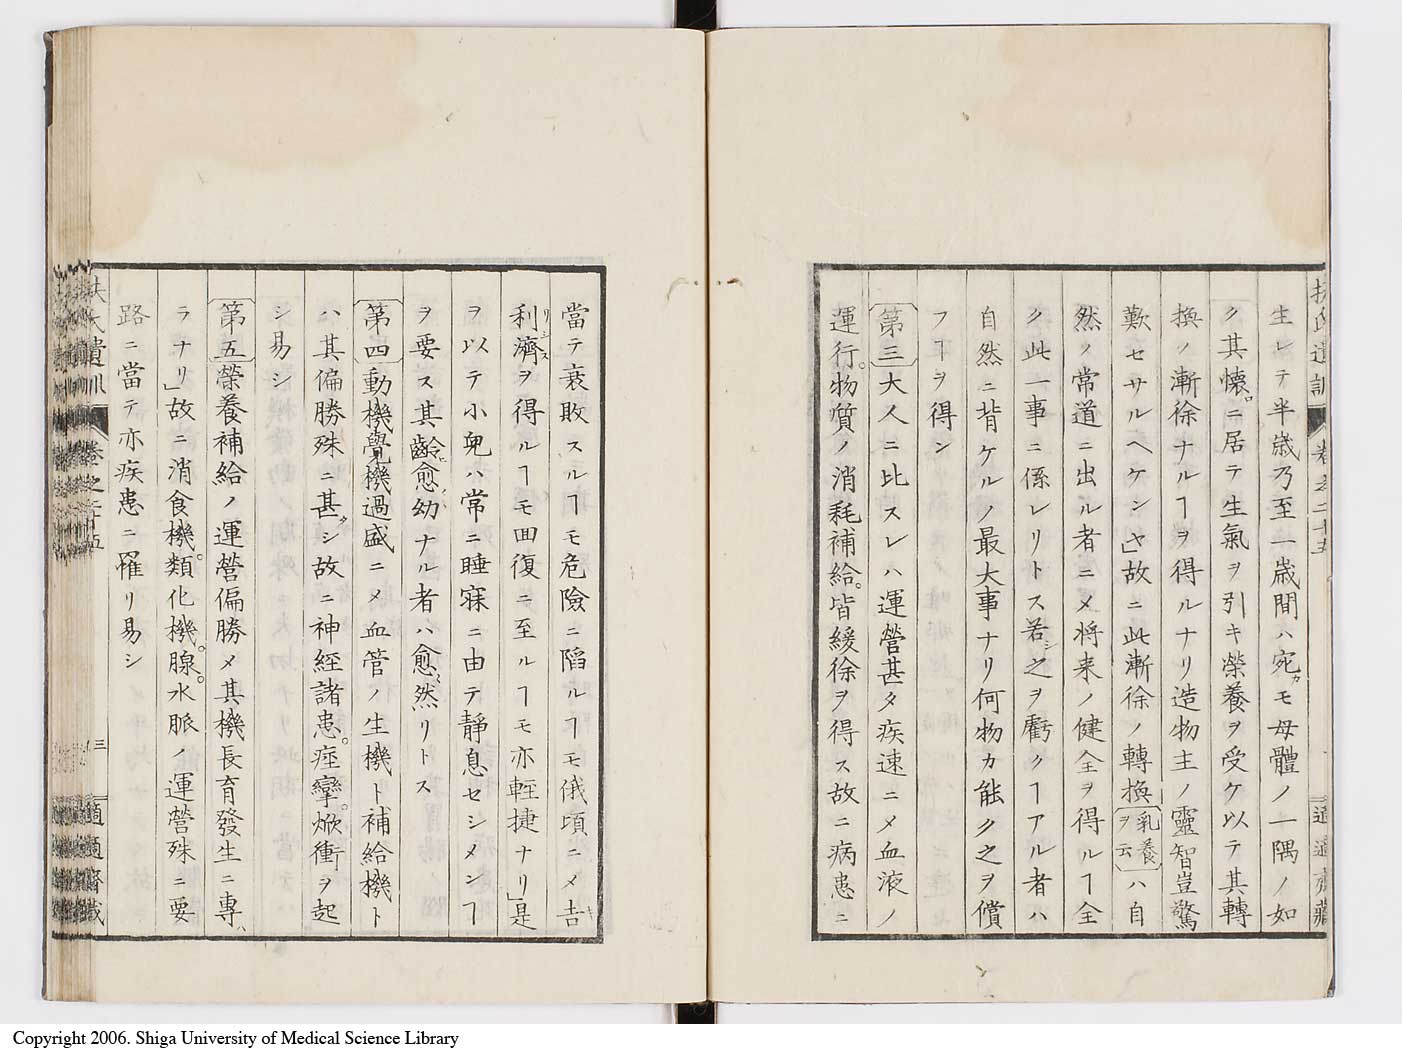 扶氏遺訓 卷之二十五 適適齋藏
生レテ半歳乃至一歳間ハ宛カモ母體ノ一隅ノ如
ク其懐ニ居テ生氣ヲ引キ榮養ヲ受ケ以テ其轉
換ノ漸徐ナルヿヲ得ルナリ造物主ノ靈智豈驚
歎セサルヘケンヤ」故ニ此漸徐ノ轉換〔乳養ヲ云〕ハ自
然ノ常道ニ出ル者ニメ将来ノ健全ヲ得ルヿ全
ク此一事ニ係レリトス若シ之ヲ虧クヿアル者ハ
自然ニ背ケルノ最大事ナリ何物カ能ク之ヲ償
フヿヲ得ン
第三大人ニ比スレハ運營甚タ疾速ニメ血液ノ
運行。物質ノ消耗補給。皆緩徐ヲ得ス故ニ病患ニ
當テ衰敗スルヿモ危險ニ陷ルヿモ俄頃ニメ𠮷
利濟リシスヲ得ルヿモ回復ニ至ルヿモ亦輕捷ナリ」是
ヲ以テ小兒ハ常ニ睡寐ニ由テ靜息セシメンヿ
ヲ要ス其齡愈幼ナル者ハ愈然リトス
第四動機覺機過盛ニメ血管ノ生機ト補給機ト
ハ其偏勝殊ニ甚タシ故ニ神経諸患。痙攣。焮衝ヲ起
シ易シ
第五榮養補給ノ運營偏勝メ其機長育發生ニ專ハ
ラナリ」故ニ消食機。類化機。腺。水脈ノ運營殊ニ要
路ニ當テ亦疾患ニ罹リ易シ
扶氏遺訓 卷之二十五 三 適適齋藏
Copyright 2006. Shiga University of Medical Science Library